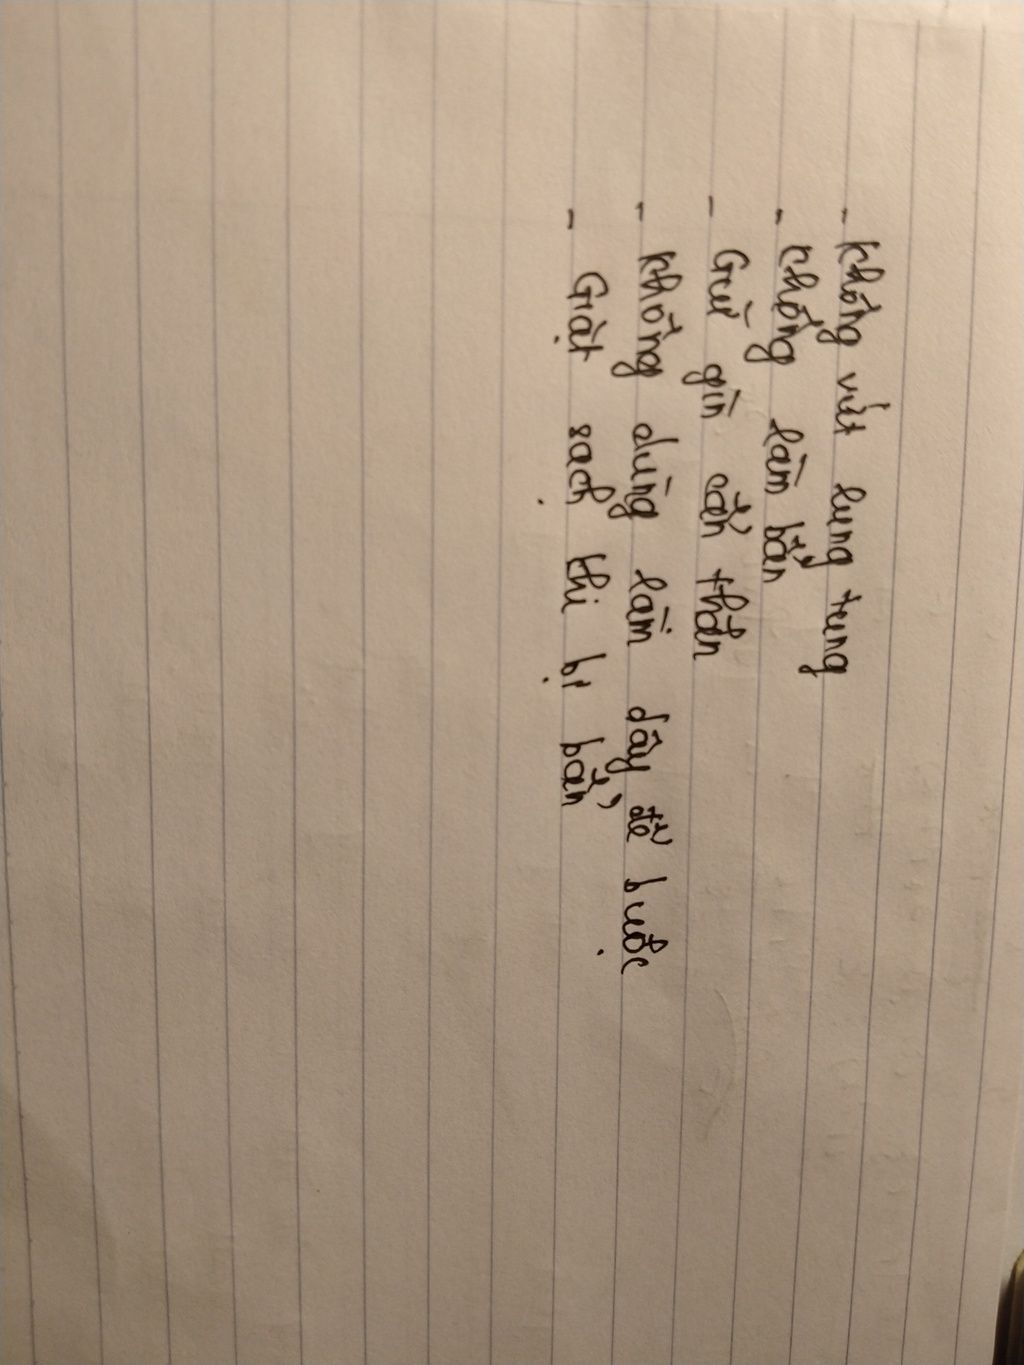 - Không vứt lung tung
- Không làm bẩn
- Giữ gìn cẩn thận
- Không dùng làm dây để buộc
- Giặt sạch khi bị bẩn